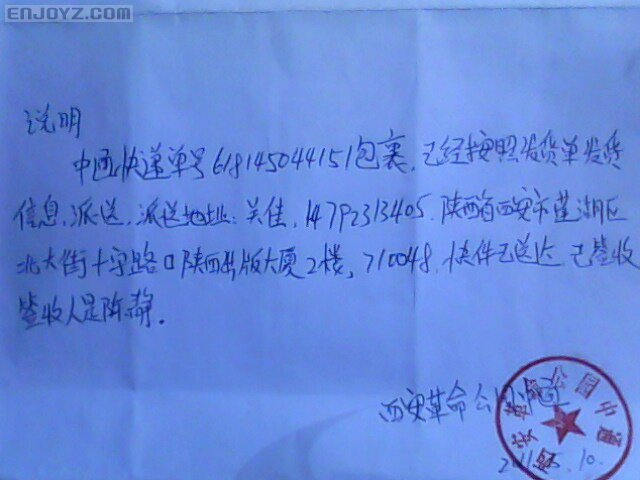 ENJOYZ.COM
说明
中通快递单号618145044151包裹,已经按照发货单发货
信息,派送,派送地址:关佳,14792313405.陕西省西安市莲湖区
北大街十字路口陕西出版大厦2楼,710048,快件已送达,已签收
签收人是陈静.
西安革命公园中通